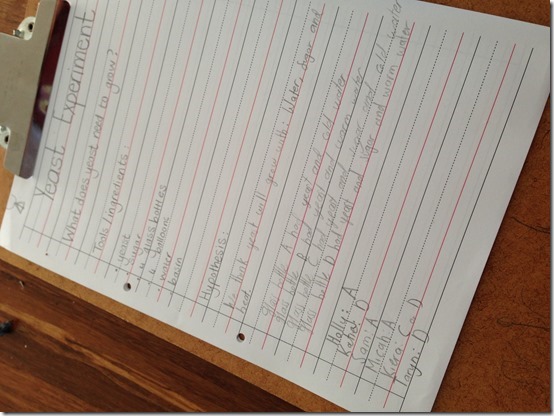 Yeast Experiment
What does yeast need to grow?
Tools / ingredients:
• yeast
• sugar
• 4 glass bottles
• 4 balloons
water
basin
Hypothesis:
We think yeast will grow with: Water, sugar and
heat
Glass bottle A had yeast and cold water
Glass bottle B had yeast and warm water
Glass bottle C had yeast and sugar and cold water
Glass bottle D had yeast and sugar and warm water
Holly: A
D
Sam: A
Micah: A
Kiera: C or D
Taryn: D